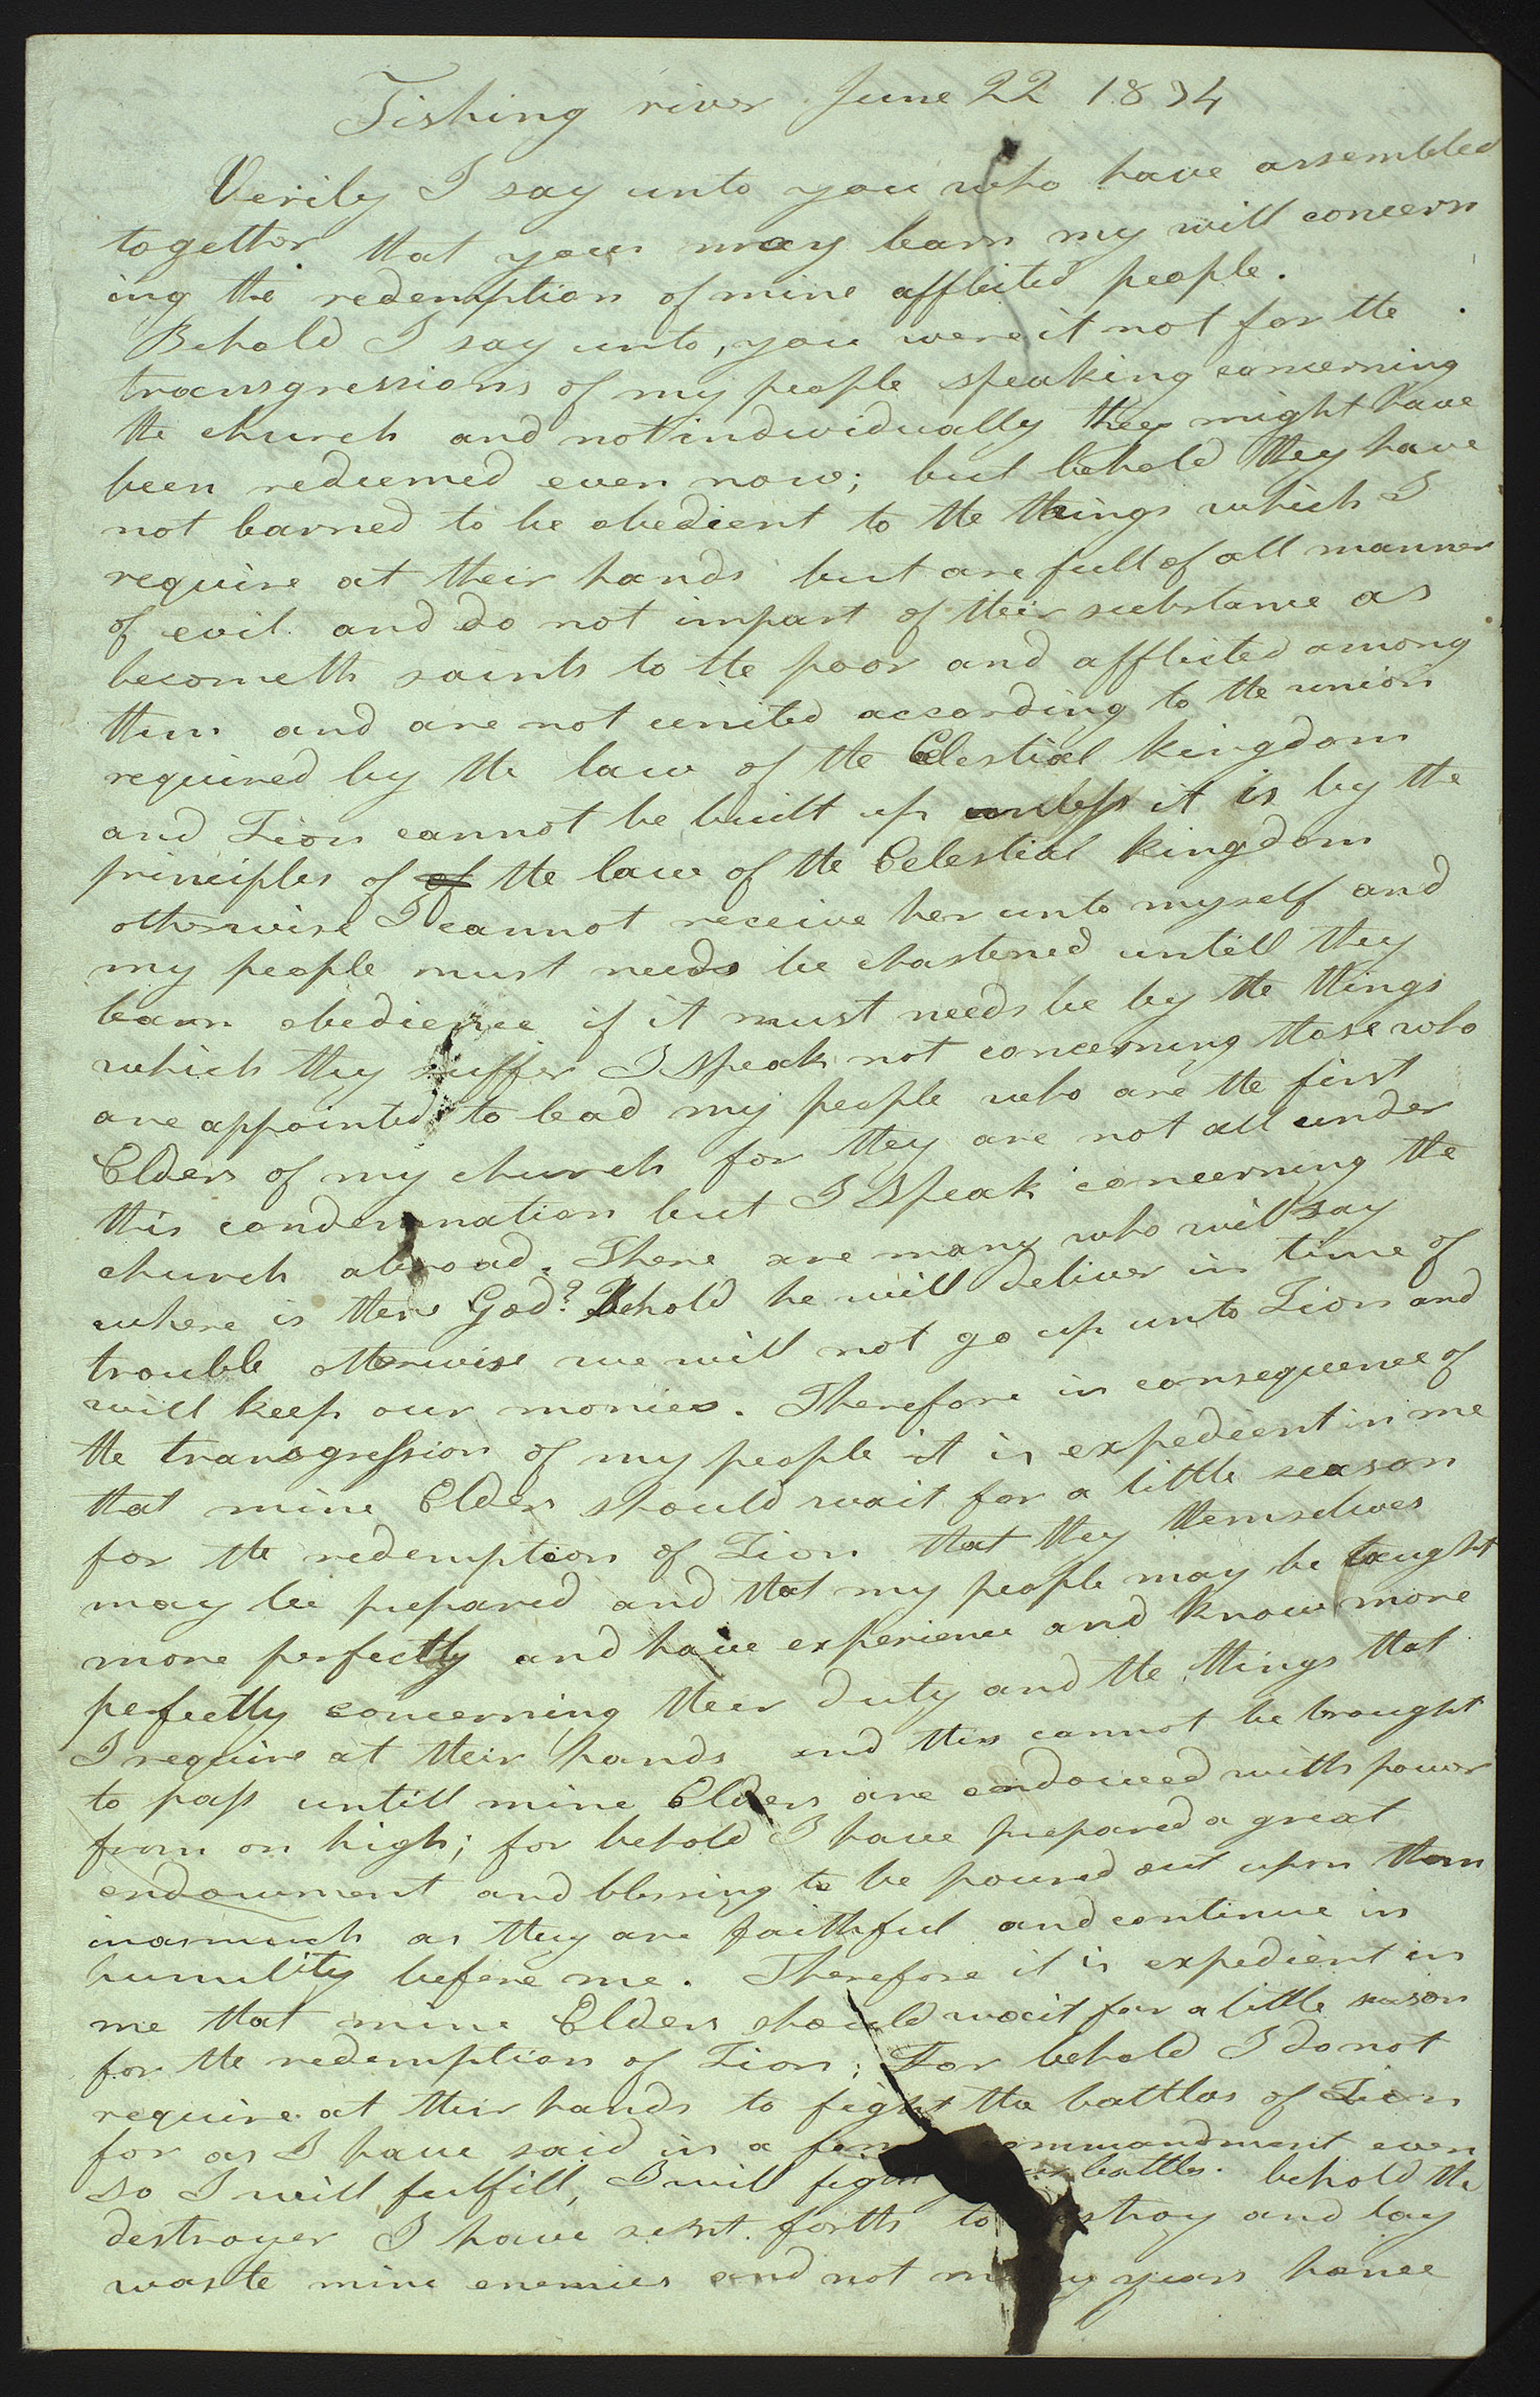 Fishing river June 22 1834
Verily I say unto you who have assembled
together that you may learn my will concern
ing the redemption of mine afflicted people.
Behold I say unto, you were it not for the
transgressions of my people speaking concerning
the church and not individually they might have
been redeemed even now; but behold they have
not learned to be obedient to the things which I
require at their hands but are full of all manner
of evil. and do not impart of their substance as
becometh saints to the poor and afflicted among
them and are not united according to the union
required by the law of the Celestial kingdom
and Zion cannot be built up unless it is by the
principles of of the law of the Celestial kingdom
otherwise I cannot receive her unto myself and
my people must needs be chastened untill they
learn obedience if it must needs be by the things
which they suffer I speak not concerning those who
are appointed to lead my people who are the first
Elders of my church for they are not all under
this condemnation but I speak concerning the
church abroad. There are many who will say
where is their God? Behold he will deliver in time of
trouble otherwise we will not go up unto Zion and
will keep our monies. Therefore in consequence of
the transgression of my people it is expedient in me
that mine Elders should wait for a little season
for the redemption of Zion that they themselves
may be prepared and that my people may be taught
more perfectly and have experience and know more
perfectly concerning their duty and the things that
I require at their hands and this cannot be brought
to pass untill mine Elders are endowed with power
from on high; for behold I have prepared a great
endowment and blessing to be poured out upon them
inasmuch as they are faithful and continue in
humility before me. Therefore it is expedient in
me that mine Elders should wait for a little season
for the redemption of Zion; For behold I do not
require at their hands to fight the battles of Zion
for as I have said in a commandment even
so I will fulfill, I will fight battles. behold the
destroyer I have sent forth to destroy and lay
waste mine enemies and not many years hence